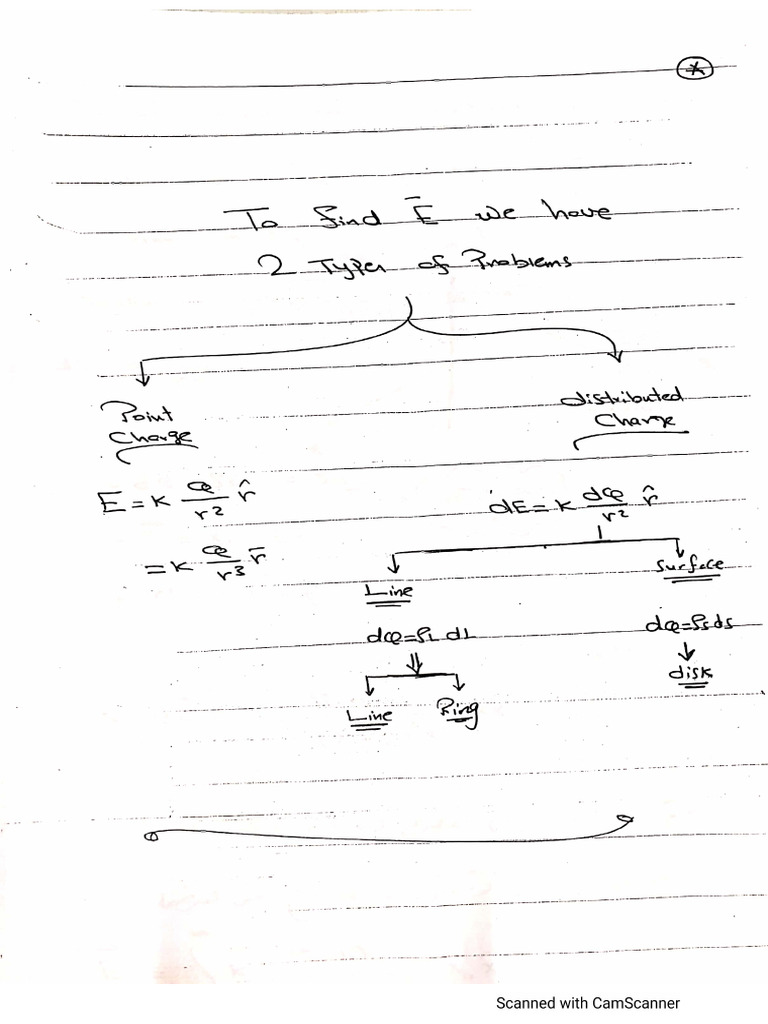 *
To find E̅ we have
2 Types of Problems
Point
Charge
distributed
Charge
E = K Q/r² r̂
= K Q/r³ r̅
dE = K dQ/r² r̂
Line
Surface
dQ = ρL dL
dQ = ρs ds
Line
Ring
disk
Scanned with CamScanner